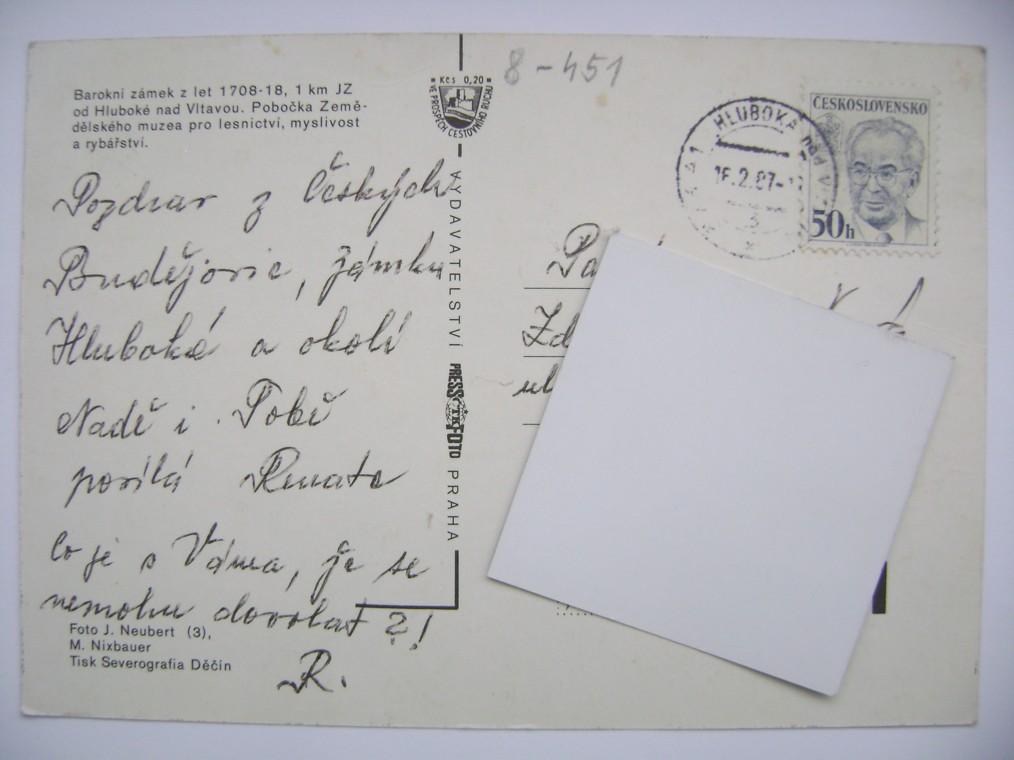 8-451
Barokní zámek z let 1708-18, 1 km JZ
od Hluboké nad Vltavou. Pobočka Země-
dělského muzea pro lesnictví, myslivost
a rybářství.
Kčs 0,20
VE PROSPĚCH CESTOVNÍHO RUCHU
ČESKOSLOVENSKO
50h
HLUBOKÁ nad V
16.2.87-1
Pozdrav z Českých
Budějovic, zámku
Hluboké a okolí
Nadě i Tobě
posílá Renata
Co je s Váma, že se
nemohu dovolat ?!
R.
VYDAVATELSTVÍ PRESSFOTO PRAHA
ČTK
Foto J. Neubert (3),
M. Nixbauer
Tisk Severografia Děčín
Pa
Zd
ul